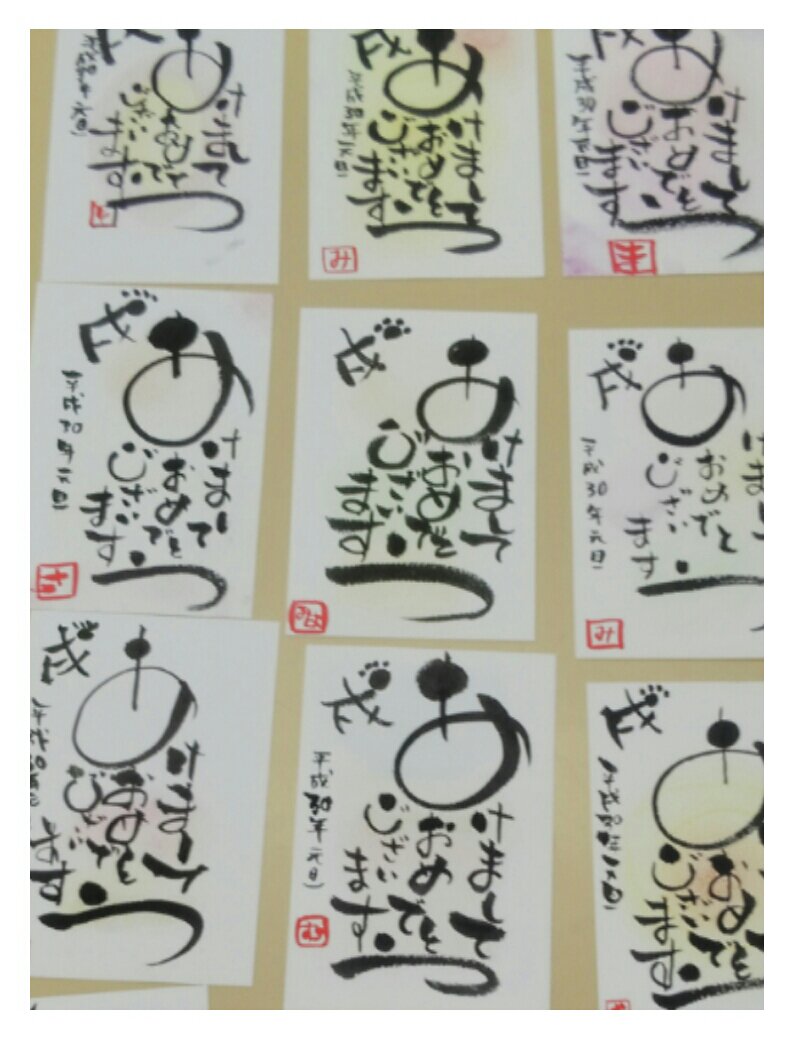 あけまして
おめでとう
ございます
戌
平成30年元旦
あけまして
おめでとう
ございます
戌
平成30年元旦
み
あけまして
おめでとう
ございます
戌
平成30年元旦
あけまして
おめでとう
ございます
戌
平成30年元旦
あけまして
おめでとう
ございます
戌
あけまして
おめでとう
ございます
戌
平成30年元旦
み
あけまして
おめでとう
ございます
戌
平成30年
あけまして
おめでとう
ございます
戌
平成30年元旦
む
あけまして
おめでとう
ございます
戌
平成30年元旦